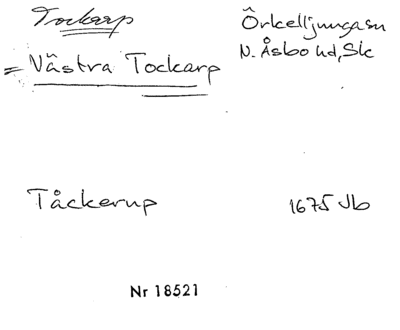 Tockarp
Örkelljunga sn
N. Åsbo hd, Sk
= Västra Tockarp
Tåckerup
1675 Jb
Nr 18521